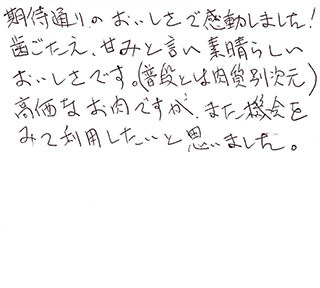 期待通りのおいしさで感動しました!
歯ごたえ、甘みと言い素晴らしい
おいしさです。(普段とは肉質別次元)
高価なお肉ですが、また機会を
みて利用したいと思いました。